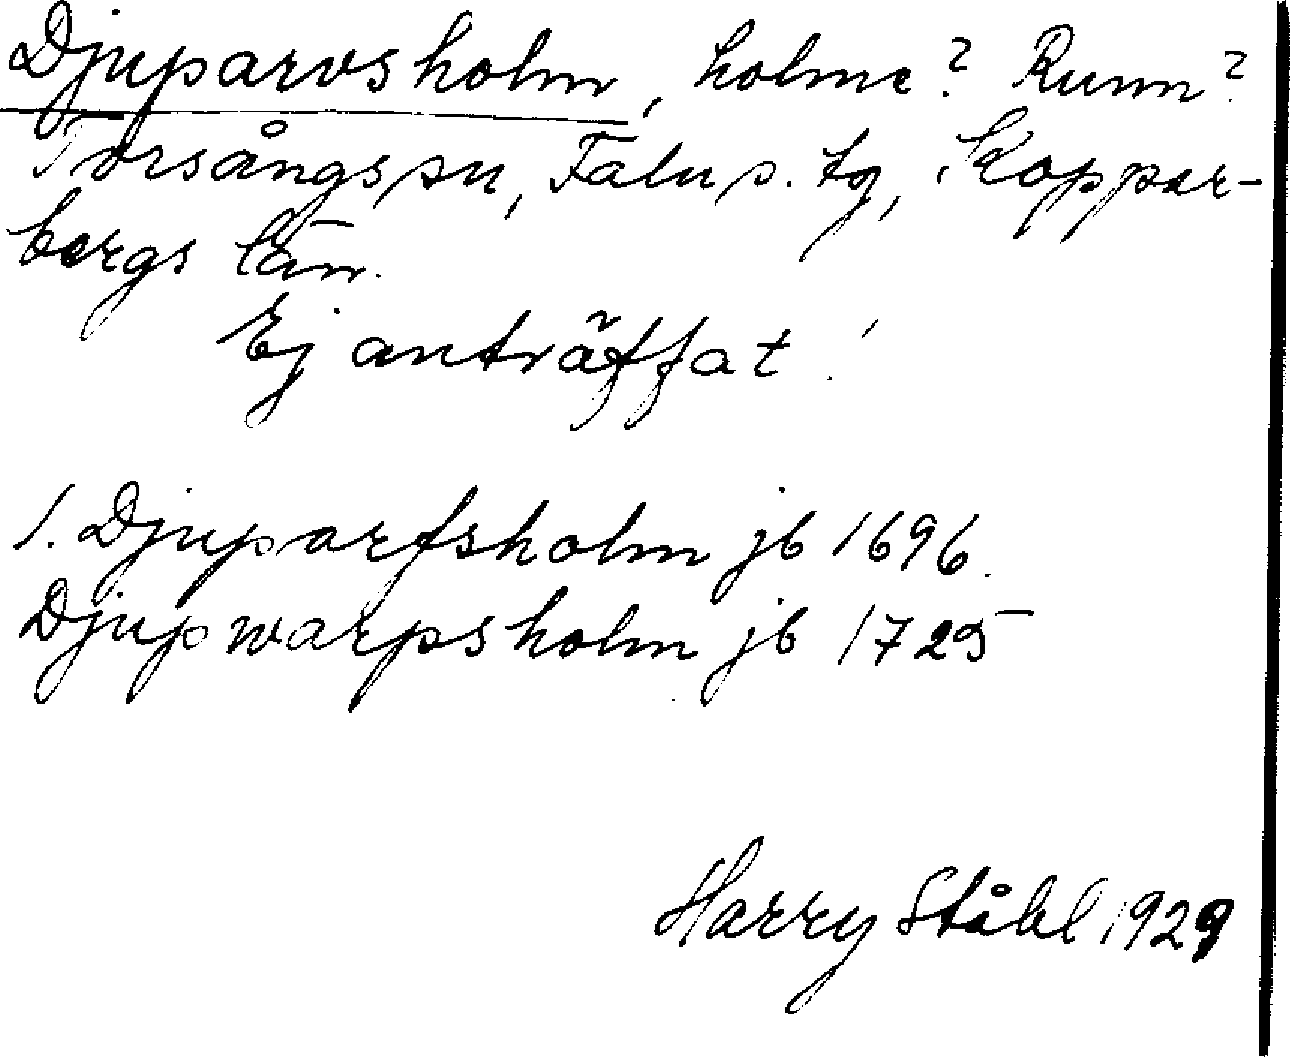 Djuparvsholm, holme? Runn?
Torsångs sn, Falu s. tg, Koppar-
bergs län.
Ej anträffat!
1. Djuparfsholm jb 1696.
Djupwarpsholm jb 1725
Harry Ståhl 1929